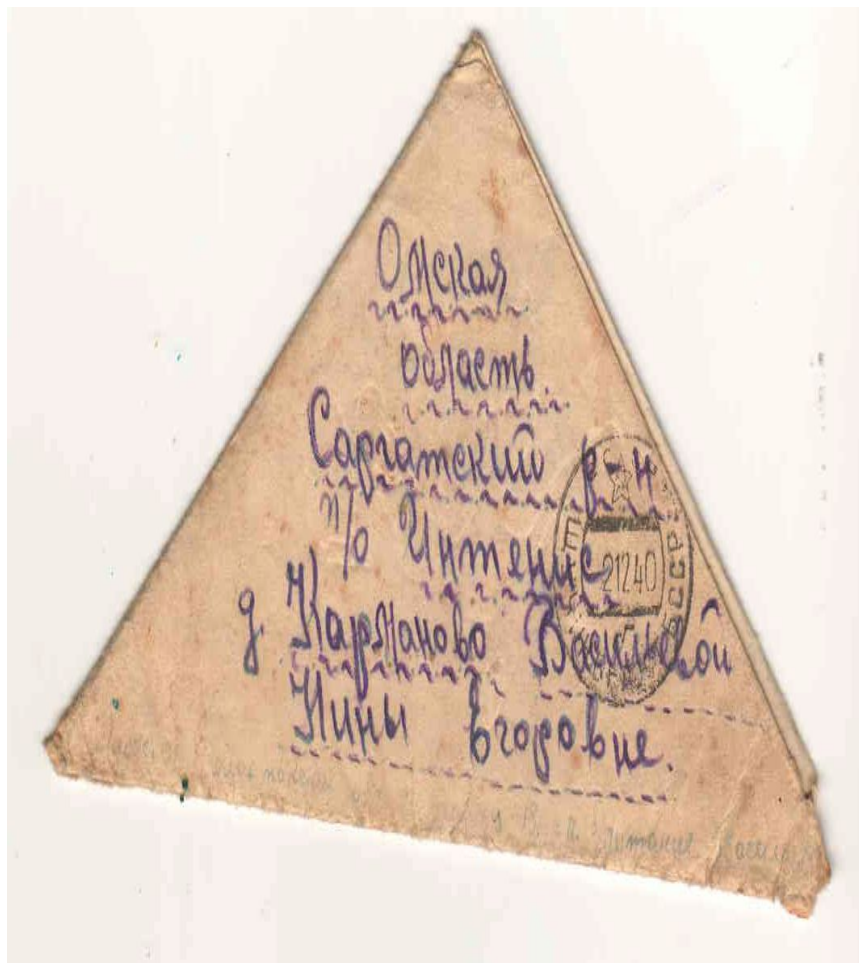 Омская
область
Саргатский р-н
п/о Интенис
д. Карманово Васильевой
Нины Егоровне.
21240
СССР